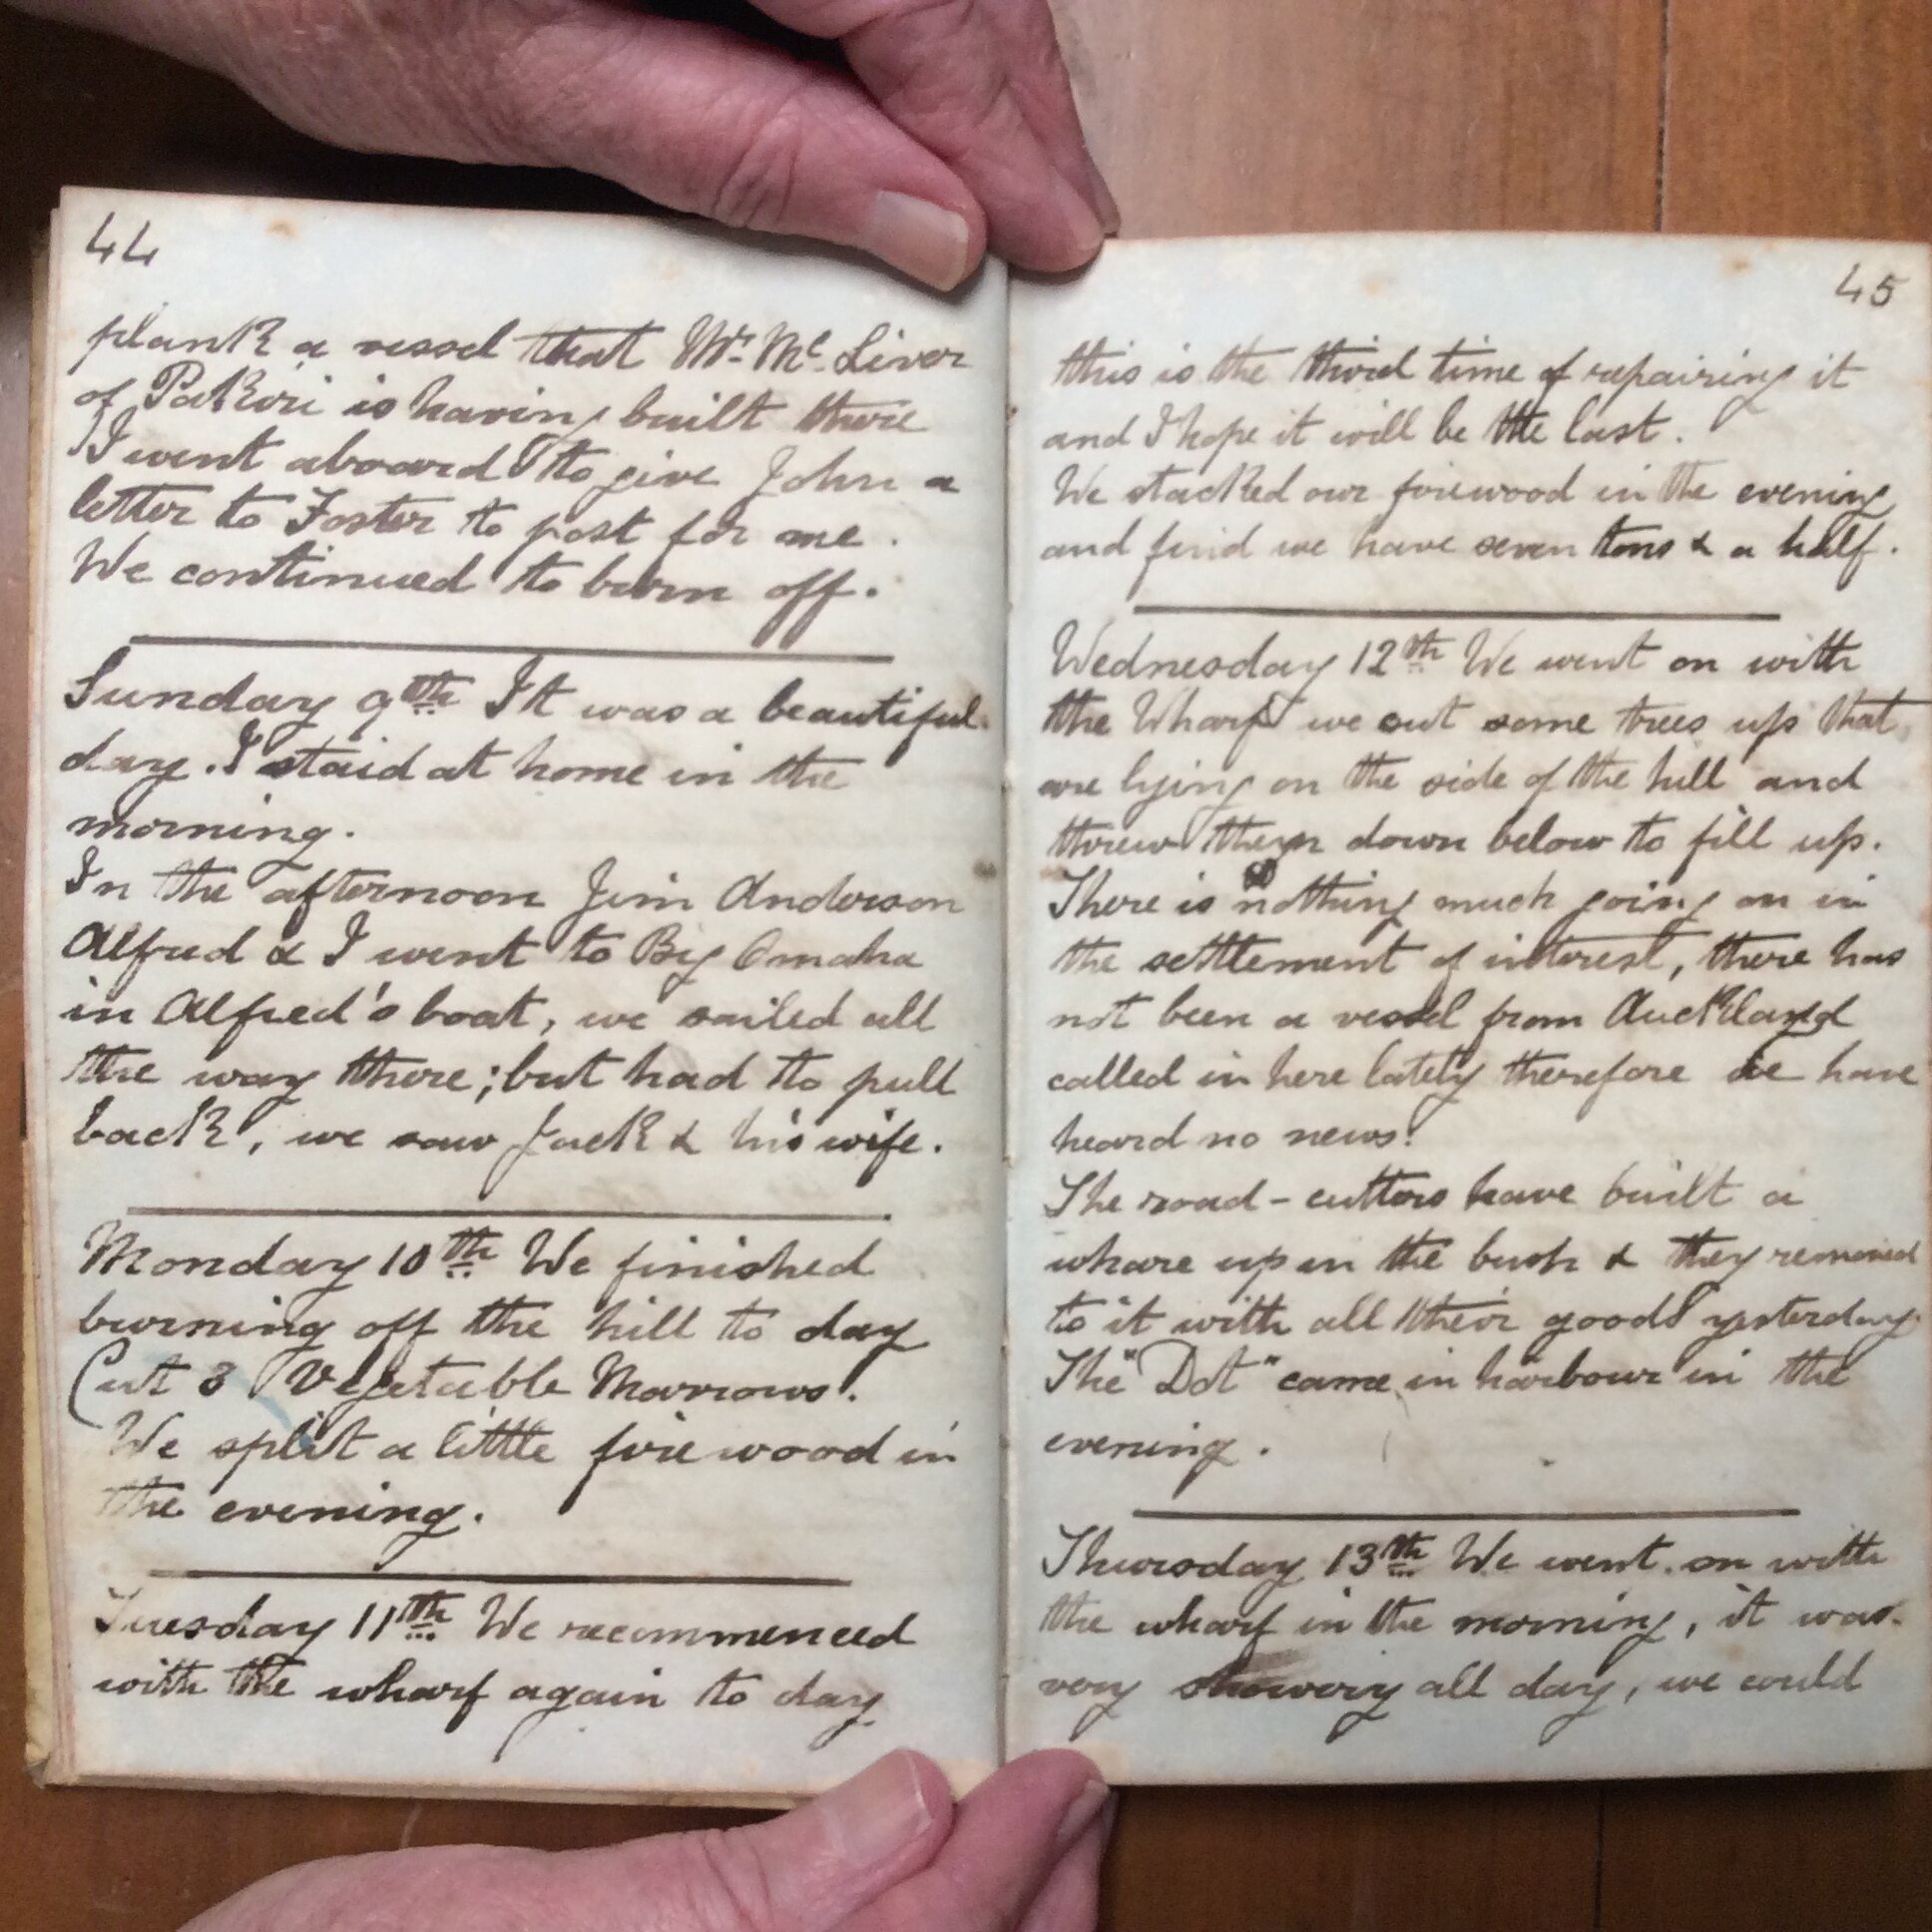 44
plank a vessel that Mr. Mc. Liver
of Pakiri is having built there
I went aboard to give John a
letter to Foster to post for me.
We continued to burn off.
Sunday 9th It was a beautiful
day. I staid at home in the
morning.
In the afternoon Jim Anderson
Alfred & I went to Big Omaha
in Alfred's boat, we sailed all
the way there; but had to pull
back, we saw Jack & his wife.
Monday 10th We finished
burning off the hill to day
Cut 3 Vegetable Marrows.
We split a little firewood in
the evening.
Tuesday 11th We recommenced
with the wharf again to day
45
this is the third time of repairing it
and I hope it will be the last.
We stacked our firewood in the evening
and find we have seven tons & a half.
Wednesday 12th We went on with
the Wharf we cut some trees up that
are lying on the side of the hill and
threw them down below to fill up.
There is nothing much going on in
the settlement of interest, there has
not been a vessel from Auckland
called in here lately therefore we have
heard no news.
The road-cutters have built a
whare up in the bush & they removed
to it with all their goods yesterday.
The "Dot" came in harbour in the
evening.
Thursday 13th We went on with
the wharf in the morning, it was
very showery all day, we could